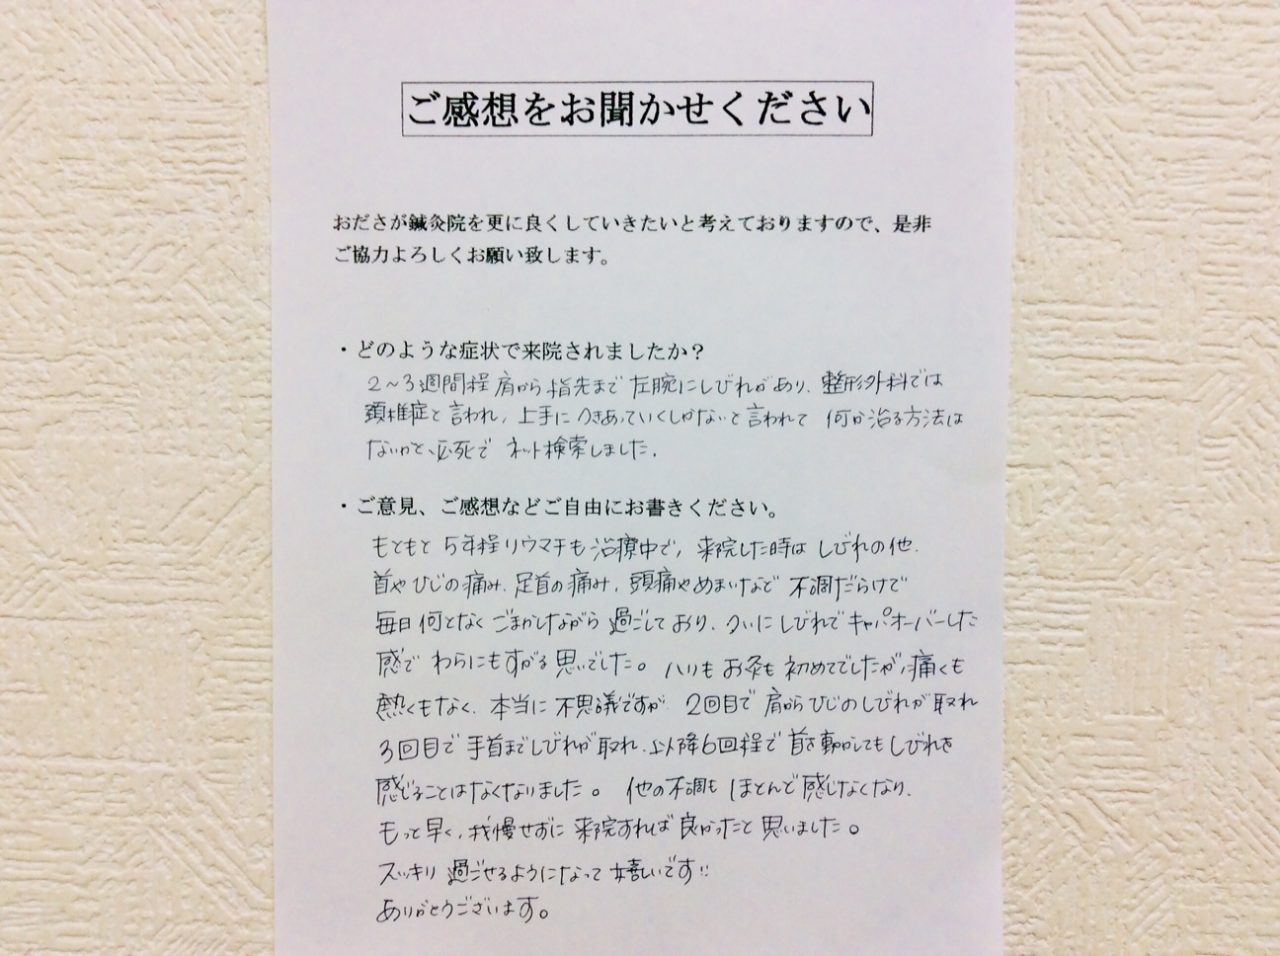 ご感想をお聞かせください
おださが鍼灸院を更に良くしていきたいと考えておりますので、是非
ご協力よろしくお願い致します。
・どのような症状で来院されましたか？
2～3週間程肩から指先まで左腕にしびれがあり、整形外科では
頚椎症と言われ、上手につきあっていくしかないと言われて何か治る方法は
ないかと、必死でネット検索しました。
・ご意見、ご感想などご自由にお書きください。
もともと5年程リウマチも治療中で、来院した時はしびれの他、
首やひじの痛み、足首の痛み、頭痛やめまいなど不調だらけで
毎日何となくごまかしながら過ごしており、ついにしびれでキャパオーバーした
感でわらにもすがる思いでした。ハリもお灸も初めてでしたが、痛くも
熱くもなく、本当に不思議ですが、2回目で肩からひじのしびれが取れ
3回目で手首までしびれが取れ、以降6回程で首を動かしてもしびれを
感じることはなくなりました。他の不調もほとんど感じなくなり、
もっと早く、我慢せずに来院すれば良かったと思いました。
スッキリ過ごせるようになって嬉しいです!!
ありがとうございます。